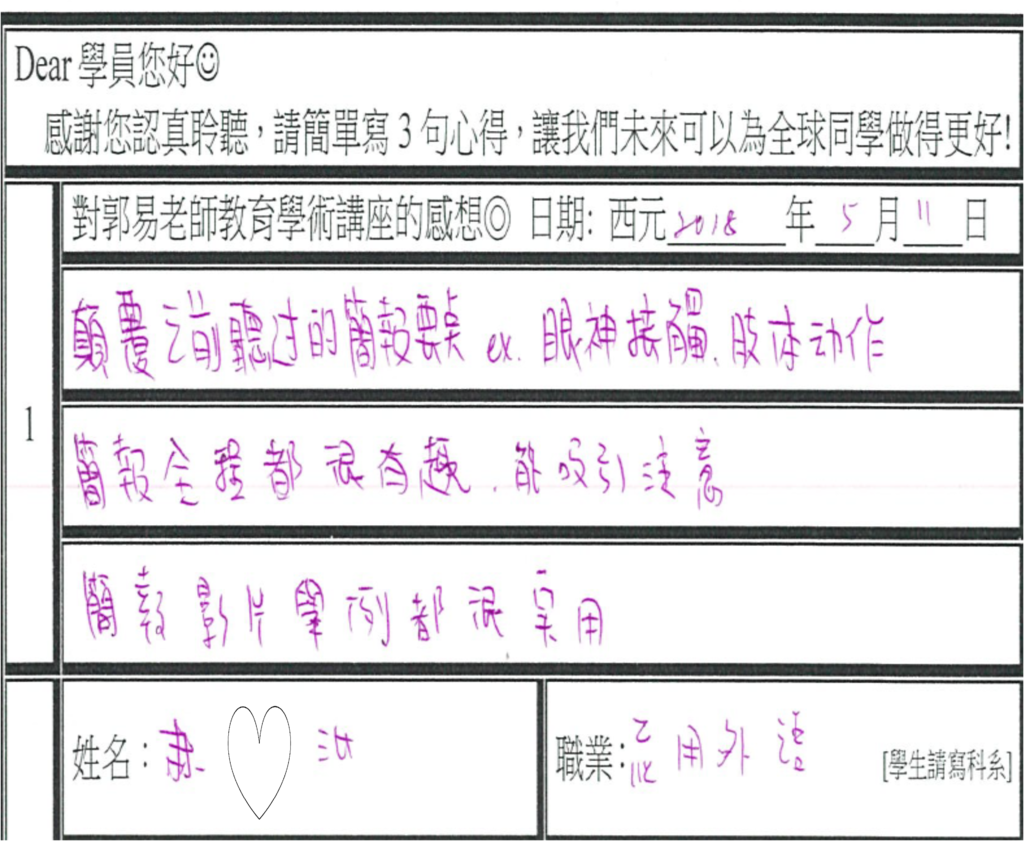 Dear 學員您好☺
感謝您認真聆聽，請簡單寫 3 句心得，讓我們未來可以為全球同學做得更好!
對郭易老師教育學術講座的感想◎ 日期: 西元2018年5月11日
1
顛覆之前聽过的簡報要点 ex. 眼神接觸、肢体动作
簡報全程都很有趣，能吸引注意
簡報影片舉例都很実用
姓名：
職業: 应用外语 [學生請寫科系]